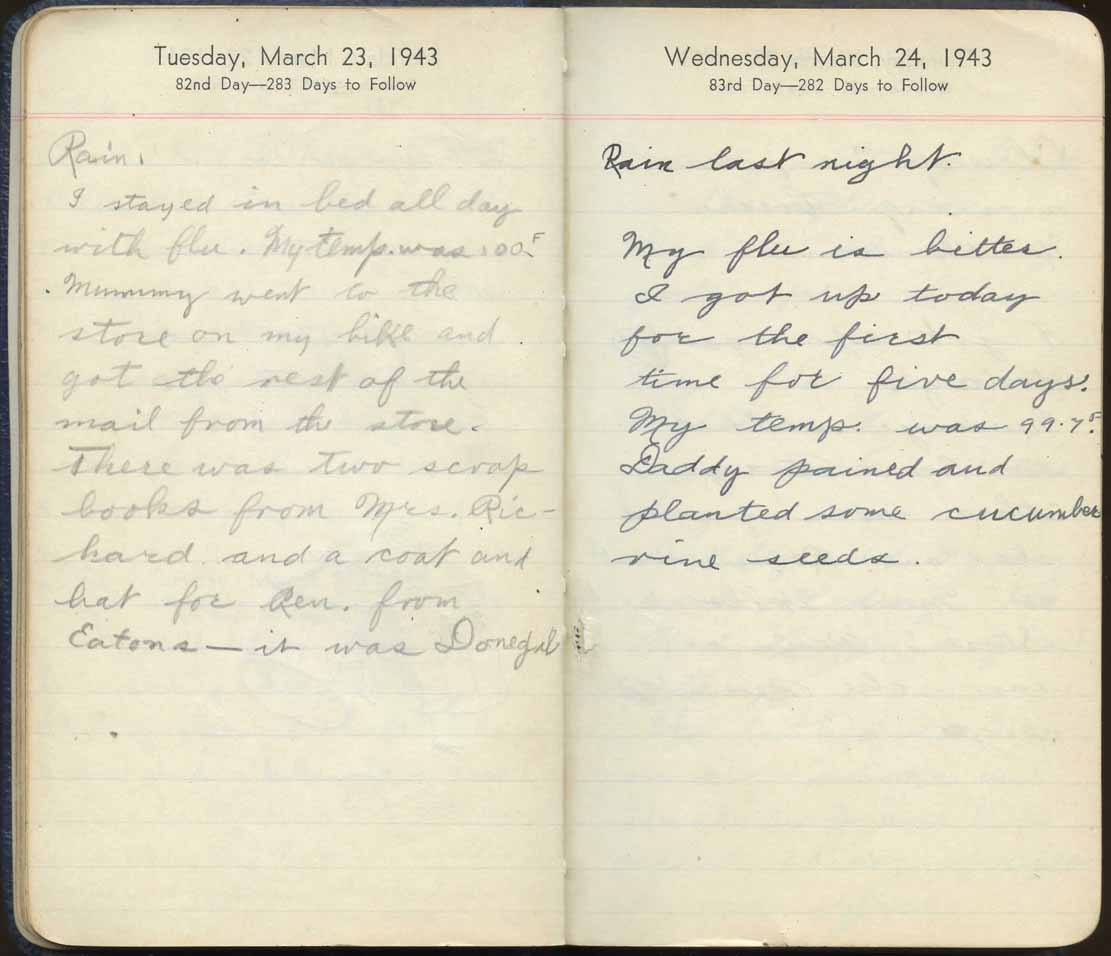 Tuesday, March 23, 1943
82nd Day—283 Days to Follow
Rain.
I stayed in bed all day
with flu. My temp. was 100.F
Mummy went to the
store on my bike and
got the rest of the
mail from the store.
There was two scrap
books from Mrs. Ric-
kard and a coat and
hat for Ren. from
Eatons — it was Donegal
Wednesday, March 24, 1943
83rd Day—282 Days to Follow
Rain last night.
My flu is bitter.
I got up today
for the first
time for five days.
My temp. was 99.7F.
Daddy pained and
planted some cucumber
vine seeds.